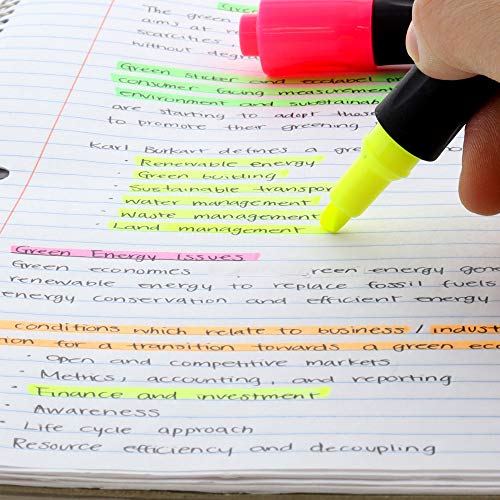 Gree
The green
aims at r
scarcities
without degra
Green sticker and ecolabel
consumer facing measuremen
environment and sustainab
are starting to adopt these
to promote their greening
Karl Burkart defines a gre
· Renewable energy
· Green building
· Sustainable transpor
· Water management
· Waste management
· Land management
Green Energy Issues
Green economies reen energy gene
renewable energy to replace fossil fuels
energy conservation and efficient energy
conditions which relate to business / indust
ion for a transition towards a green eco
· Open and competitive markets
· Metrics, accounting, and reporting
· Finance and investment
· Awareness
· Life cycle approach
Resource efficiency and decoupling